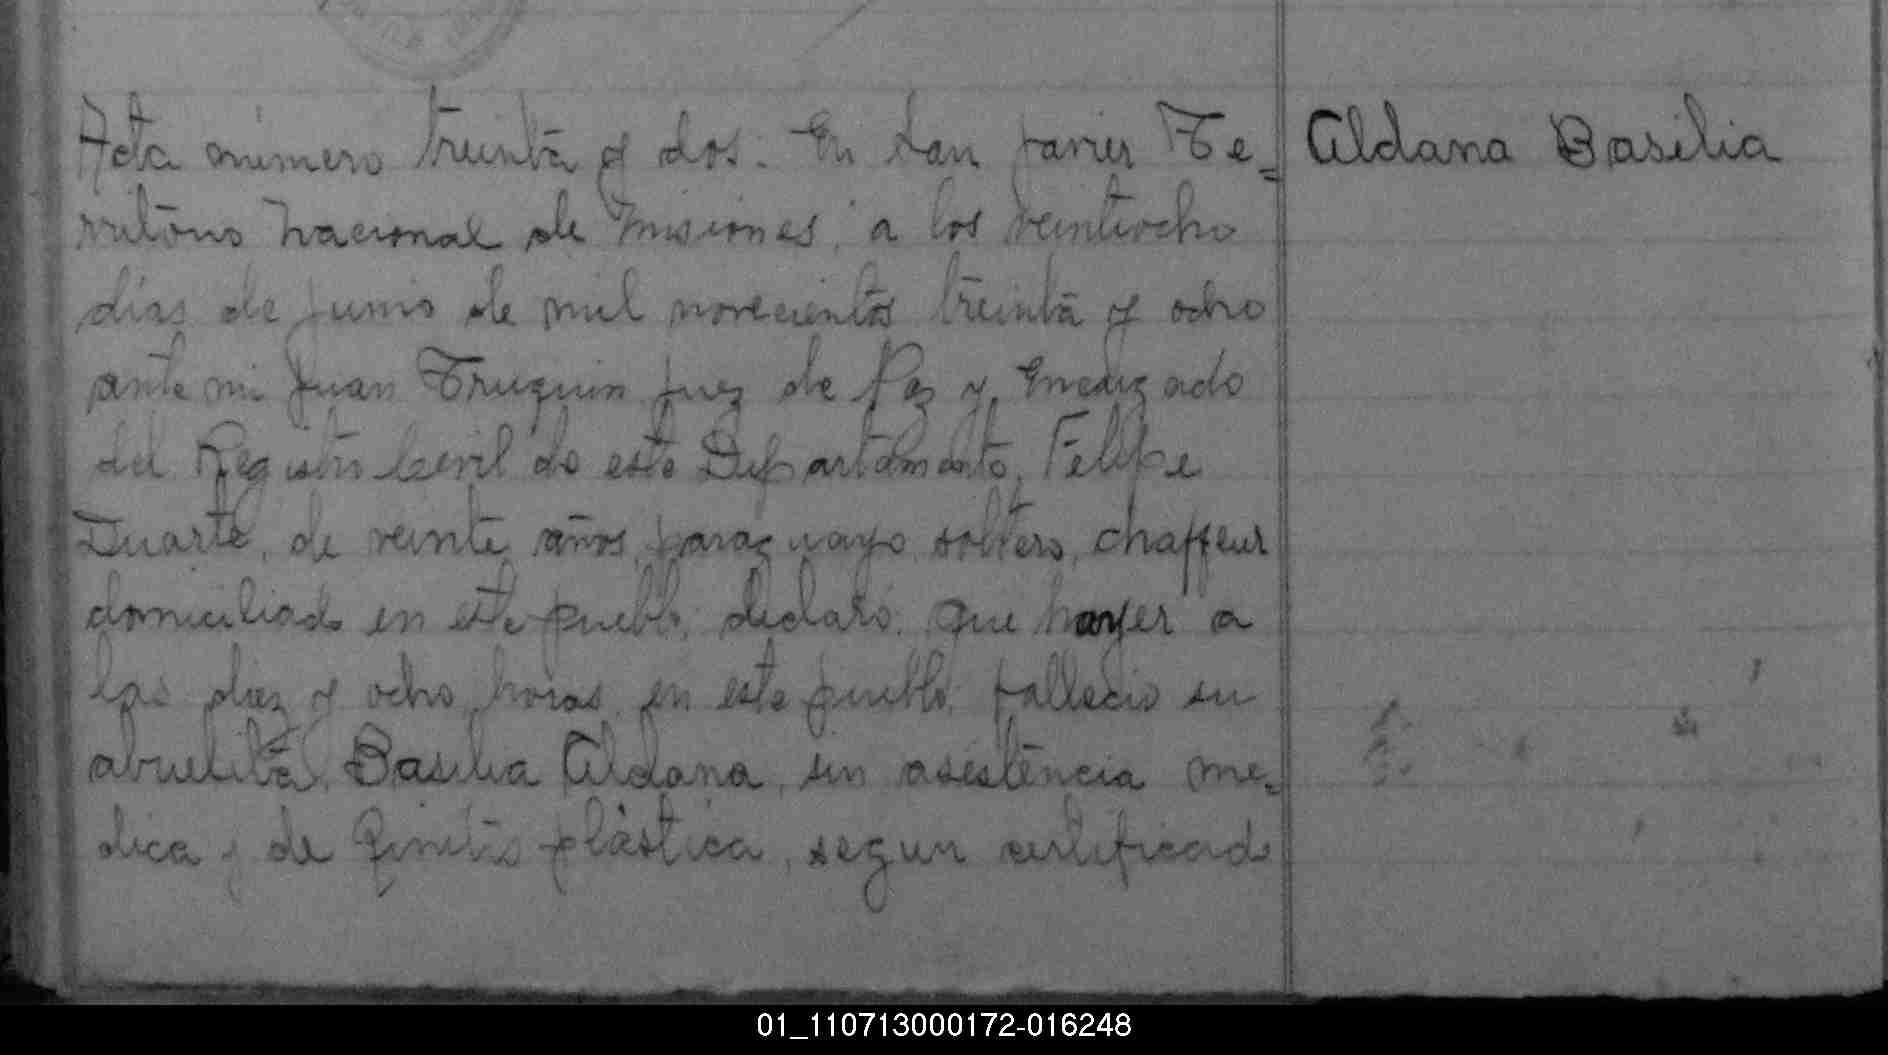 Acta número treinta y dos. En San Javier Te=
rritorio Nacional de Misiones, a los veintiocho
días de junio de mil novecientos treinta y ocho
ante mi Juan Truquin Juez de Paz y Encargado
del Registro Civil de este Departamento, Felipe
Duarte, de veinte años, paraguayo, soltero, chaffeur
domiciliado en este pueblo, declaró: Que hayer a
las diez y ocho horas, en este pueblo, falleció su
abuelita, Basilia Aldana, sin asistencia me=
dica y de plástica, segun certificado
Aldana Basilia
01_110713000172-016248